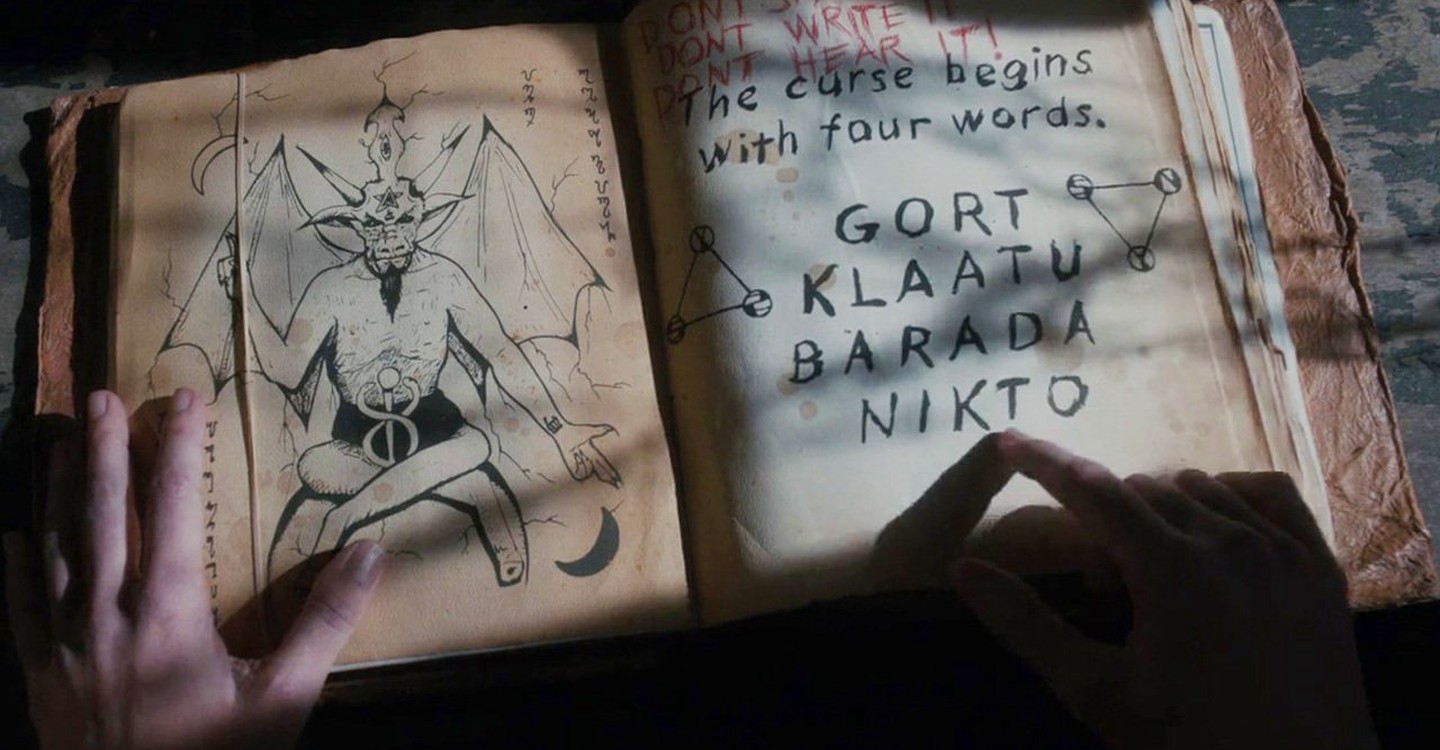 DONT
DONT WRITE IT
DONT HEAR IT!
The curse begins
with four words.
GORT
KLAATU
BARADA
NIKTO